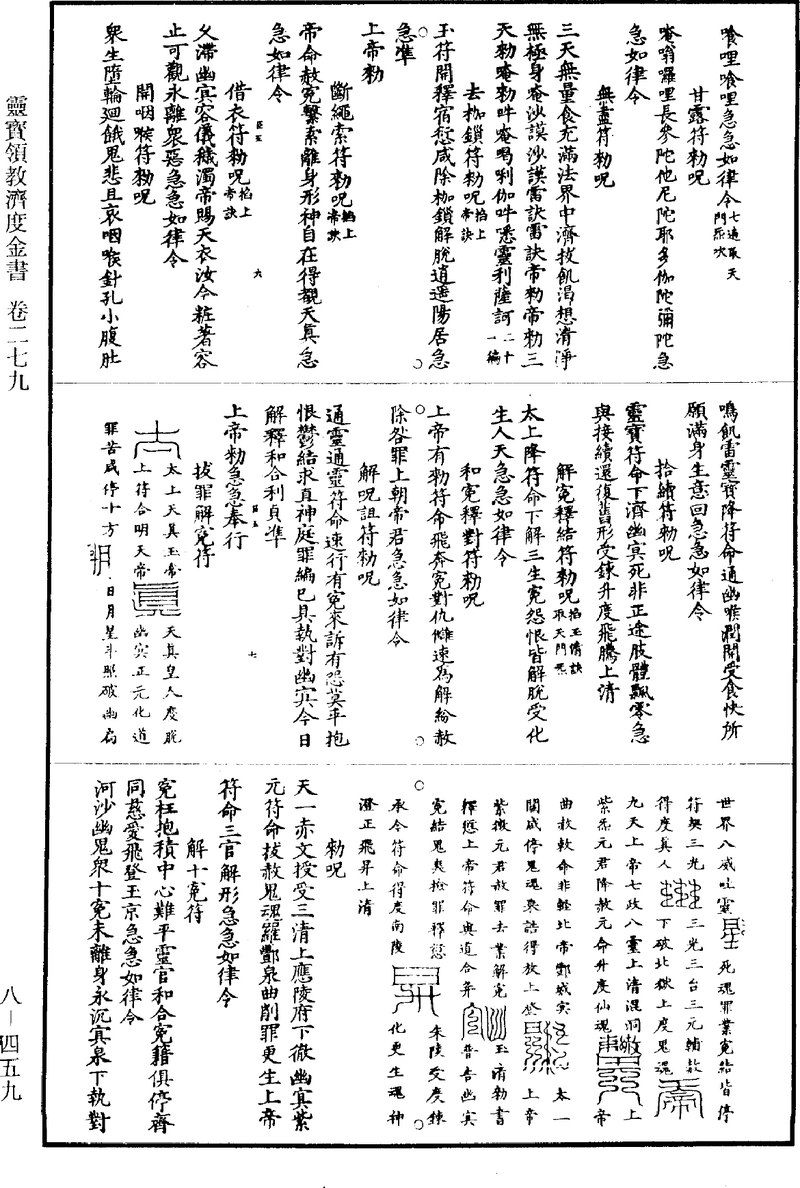 喰哩喰哩急急如律令七遍取天門炁吹
甘露符勑呪
唵嗡囉哩長參陀他尼陀耶多伽陀彌陀急
急如律令
無盡符勑呪
三天無量食充滿法界中濟拔飢渴想清淨
無極身唵沙謨沙謨雷訣雷訣帝勑帝勑三
天勑唵勑吽唵喝唎伽吽悉靈利薩訶二十一編
去枷鎖符勑呪掐上帝訣
玉符開釋宿愆咸除枷鎖解脫逍遥陽居急
急準
上帝勑
斷繩索符勑呪掐上帝訣
帝命赦寃繫索離身形神自在得覲天真急
急如律令
借衣符勑呪掐上帝訣
久滯幽冥容儀穢濁帝賜天衣汝今粧著容
止可觀永離衆惡急急如律令
開咽喉符勑呪
衆生墮輪迴餓鬼悲且哀咽喉針孔小腹肚
鳴飢雷靈寶降符命通幽喉潤開受食快所
願滿身生意回急急如律令
拾續符勑呪
靈寶符命下濟幽冥死非正途肢體飄零急
與接續還復舊形受鍊升度飛騰上清
解寃釋結符勑呪掐玉清訣取天門炁
太上降符命下解三生寃怨恨皆解脫受化
生人天急急如律令
和寃釋對符勑呪
上帝有勑符命飛奔寃對仇讎速爲解紛赦
除咎罪上朝帝君急急如律令
解呪詛符勑呪
通靈通靈符命速行有寃來訴有怨莫平抱
恨鬱結求真神庭罪編已具執對幽冥今日
解釋和合利貞準
上帝勑急急奉行
拔罪解寃符
太上天真玉帝 天真皇人度脫
上符合明天帝 幽冥正元化道
罪苦咸停十方 日月星斗照破幽扃
世界八威吐靈 死魂罪業寃結皆停
符契三光 三光三台三元輔欽
得度真人 下破北獄上度鬼魂
九天上帝七政八靈上清混洞 上
紫炁元君降赦元命升度仙魂 帝
曲赦敕命非輕北帝酆城冥 太一
關咸停鬼魂衆誥得放上登 上帝
紫微元君赦罪去業解寃 玉清勑書
釋愆上帝符命與道合并 普告幽冥
寃結鬼爽拔罪釋愆 朱陵受度鍊
承今符命得度南陵 化更生魂神
澄正飛昇上清
勑呪
天一赤文授受三清上應陵府下徹幽冥紫
元符命拔赦鬼魂羅酆泉曲削罪更生上帝
符命三官解形急急如律令
解十寃符
寃枉抱積中心難平靈官和合寃籍俱停齊
同慈愛飛登玉京急急如律令
河沙幽鬼衆十寃未離身永沉冥泉下執對
靈寶領教濟度金書 卷二七九
八－四五九
六
七